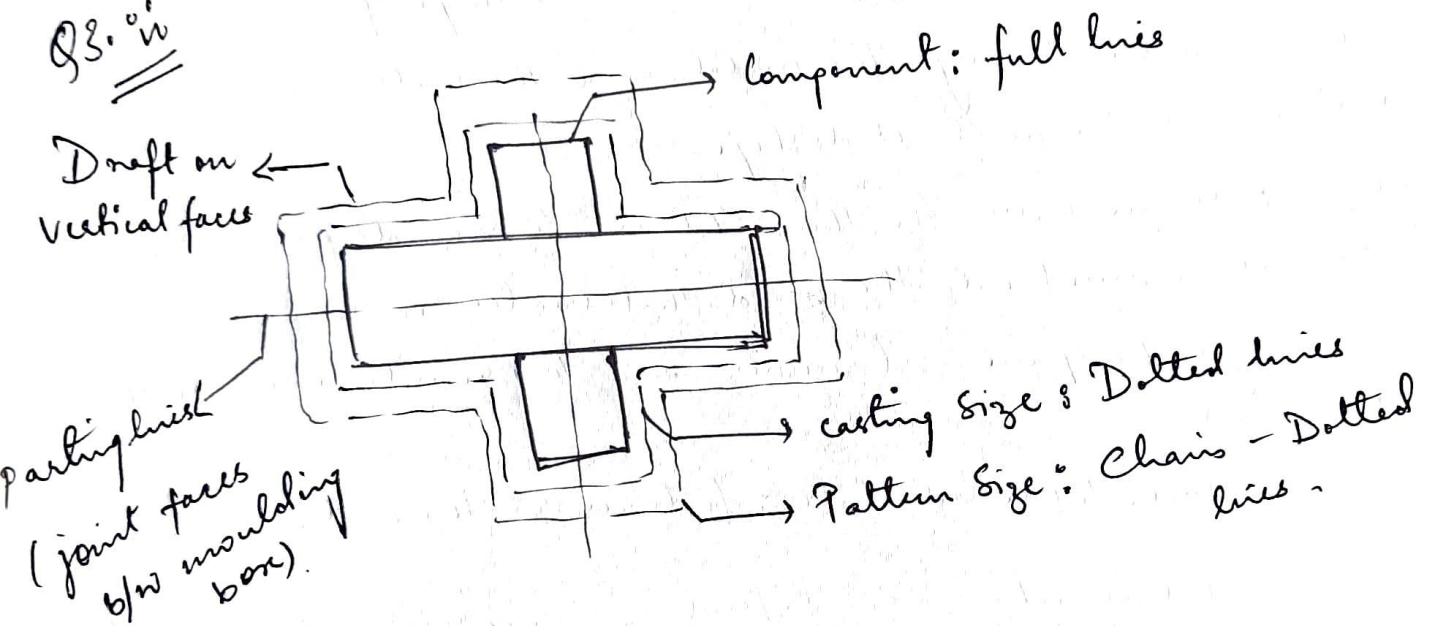 Q3. ii)
Component: full lines
Draft on
Vertical faces
Parting lines
(joint faces
b/w moulding
box).
casting Size: Dotted lines
Pattern Size: Chain - Dotted
lines.